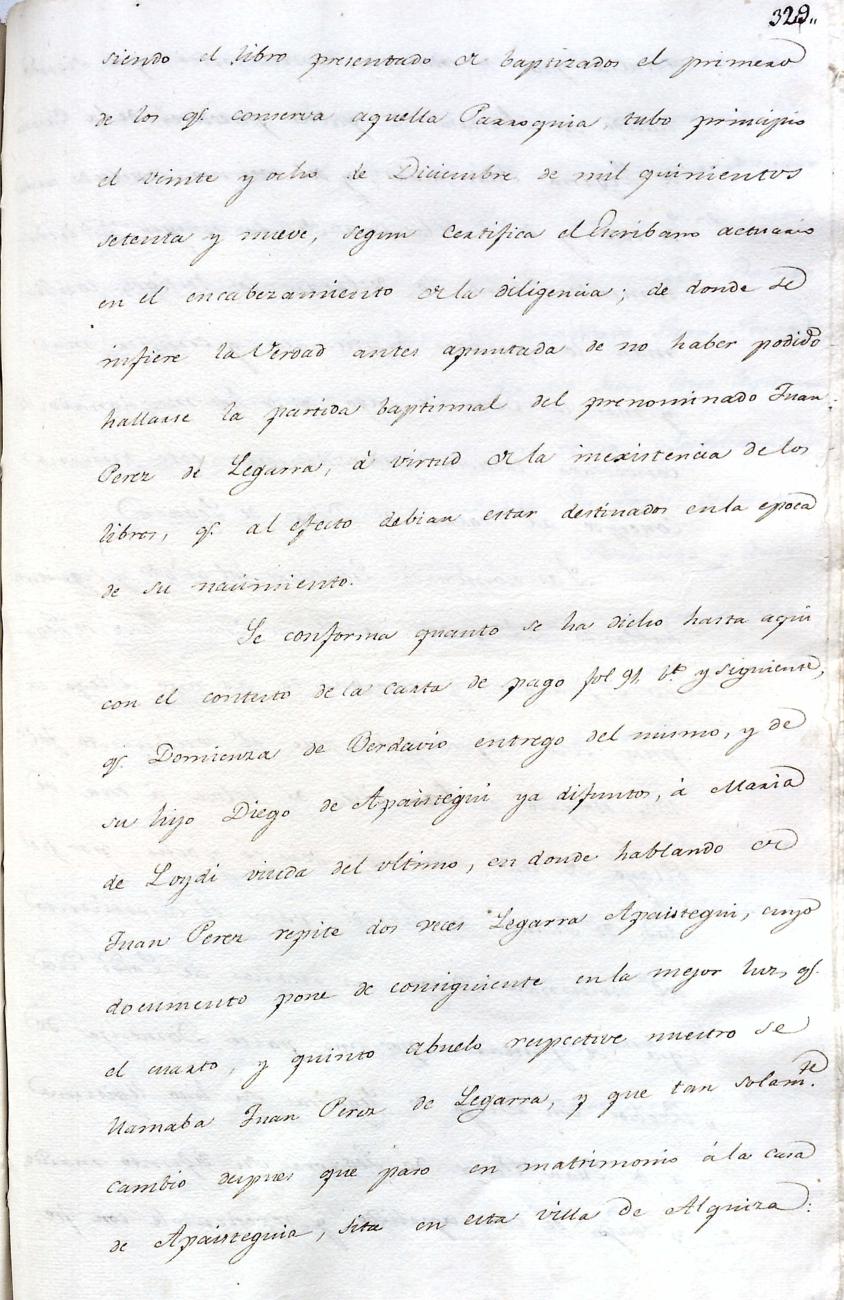 329.,
siendo el libro presentado de baptizados el primero
de los q.e conserva aquella Parroquia tubo principio
el veinte y ocho de Diciembre de mil quinientos
setenta y nueve, segun certifica el Escribano actuario
en el encabezamiento de la diligencia; de donde se
infiere la Verdad antes apuntada de no haber podido
hallarse la partida baptismal del prenominado Juan
Perez de Legarra, á virtud de la inexistencia de los
libros, q.e al efecto debian estar destinados en la epoca
de su nacimiento.
Se conforma quanto se ha dicho hasta aqui
con el contesto de la carta de pago fol 91 b.to y siguiente,
q.e Domienza de Berdavio entrego del mismo, y de
su hijo Diego de Apaistegui ya difuntos, á Maria
de Loydi viuda del ultimo, en donde hablando de
Juan Perez repite dos veces Legarra Apaistegui, cuyo
documento pone de consiguiente en la mejor luz, q.e
el cuarto, y quinto Abuelo respective nuestro se
llamaba Juan Perez de Legarra, y que tan solam.te
cambió despues que paso en matrimonio á la casa
de Apaisteguia, sita en esta villa de Alquiza: